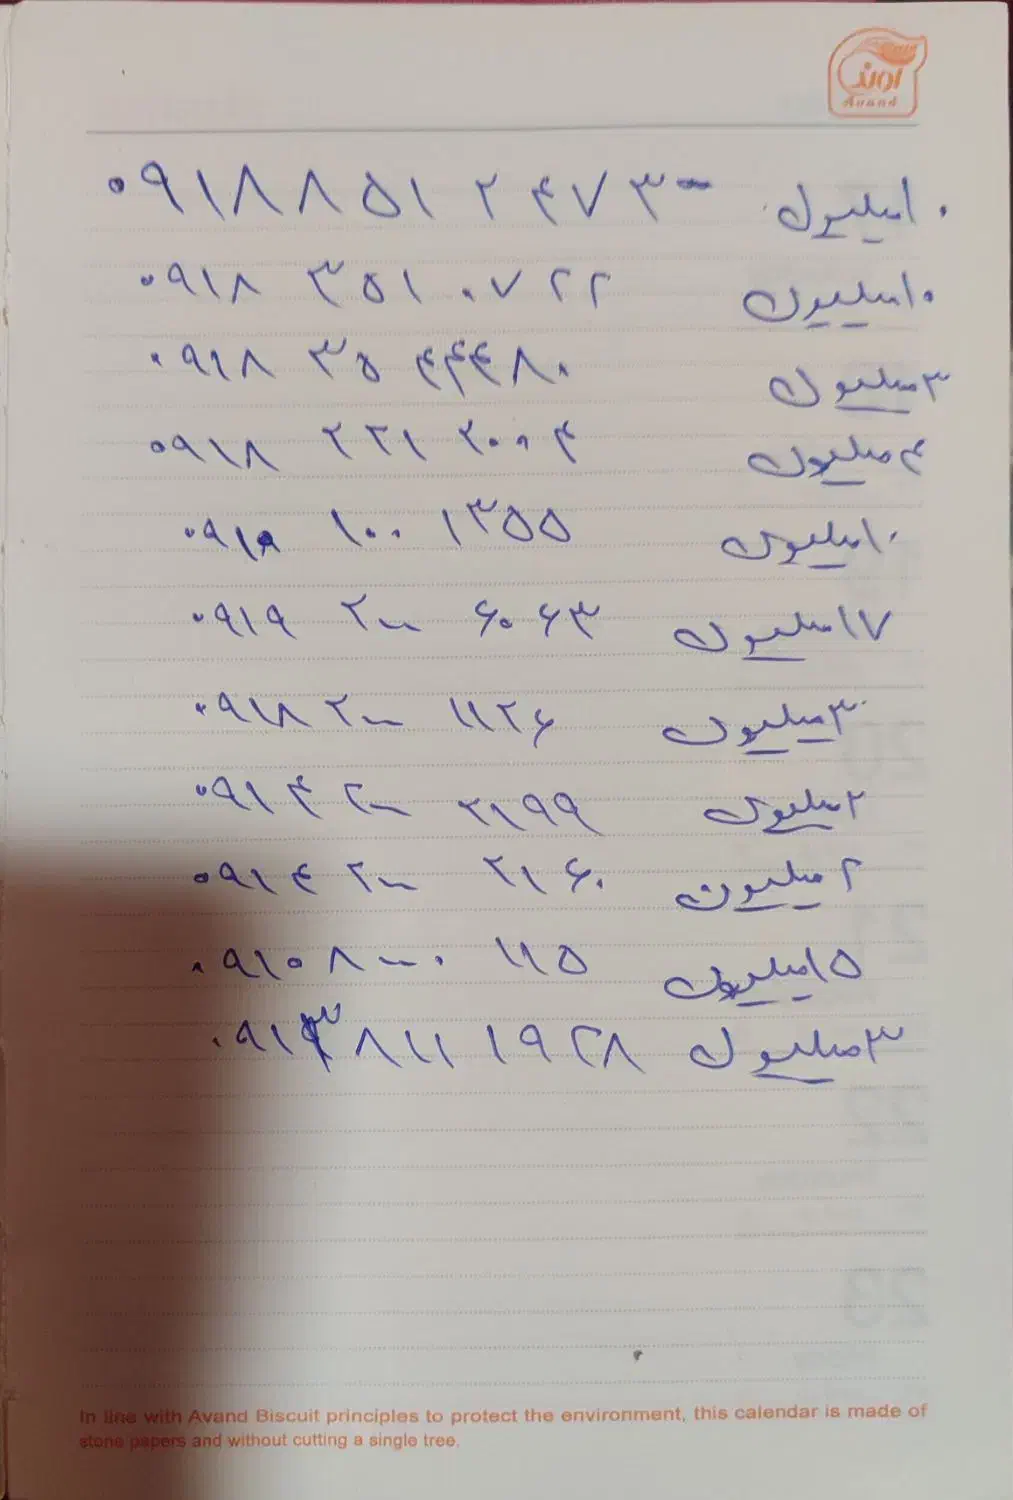 اوند
Avand
۰۹۱۸۸۵۱۲۴۷۳ - ۱۰میلیون
۰۹۱۸ ۳۵۱ ۰۷۲۲ ۱۰میلیون
۰۹۱۸ ۳۵ ۴۴۴۸۰ ۳میلیون
۰۹۱۸ ۲۲۱ ۲۰۰۴ ۴میلیون
۱۰۰ ۱۳۵۵ ۱۰میلیون
۰۹۱۹ ۲۰۰ ۶۰۶۳ ۱۷میلیون
۰۹۱۸ ۲۰۰ ۱۱۲۶ ۳۰میلیون
۰۹۱۴ ۲۰۰ ۲۱۹۹ ۲میلیون
۰۹۱۴ ۲۰۰ ۲۱۶۰ ۲میلیون
۰۹۱۰۸۰۰۰ ۱۱۵ ۱۵میلیون
۰۹۱۳۸۱۱ ۱۹۲۸ ۳میلیون
In line with Avand Biscuit principles to protect the environment, this calendar is made of
stone papers and without cutting a single tree.